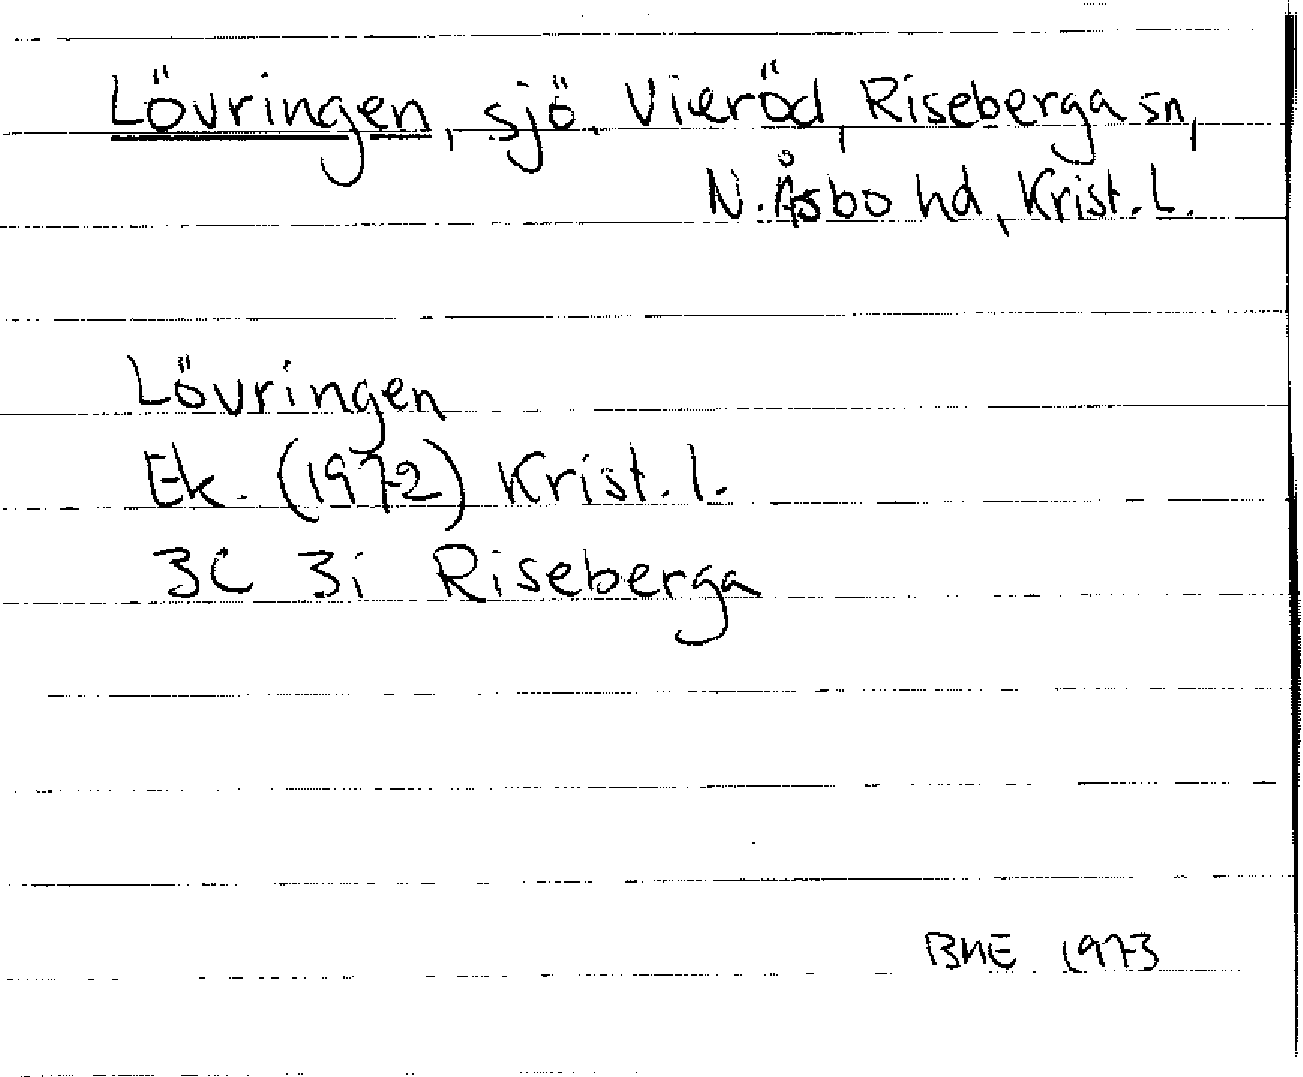 Lövringen, sjö. Vieröd, Riseberga sn,
N. Åsbo hd, Krist. L.
Lövringen
Ek. (1972) Krist. l.
3C 3i Riseberga
BHE 1973